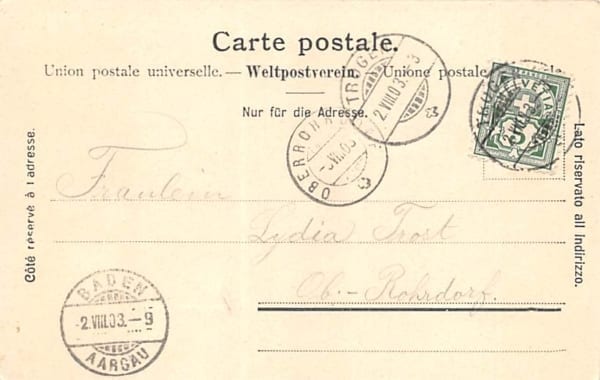 Carte postale.
Union postale universelle. — Weltpostverein. — Unione postale
Nur für die Adresse.
Côté réservé à l adresse.
Lato riservato all indirizzo.
TROGEN
2.VIII.03.-3
HELVETIA
5
TROGEN
OBERROHRD
VIII.03
Fräulein
Lydia Trost
Ob.-Rohrdorf.
BADEN
-2.VIII.03.-9
AARGAU